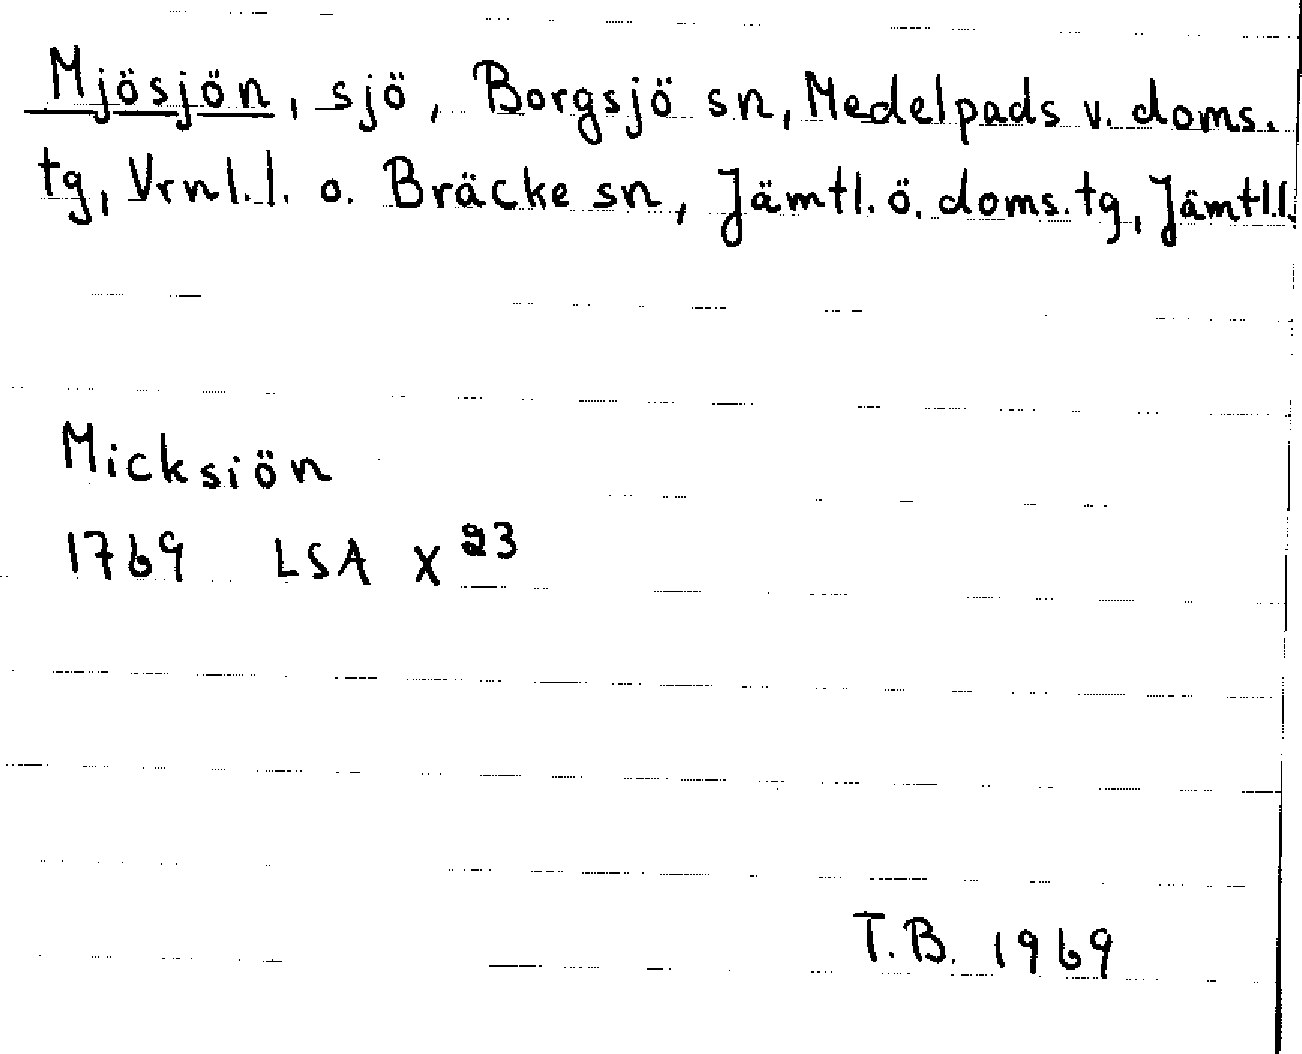 Mjösjön, sjö, Borgsjö sn, Medelpads v. doms.
tg, Vrnl.l. o. Bräcke sn, Jämtl. ö. doms. tg, Jämtl.l.
Micksiön
1769 LSA X 23
T.B. 1969